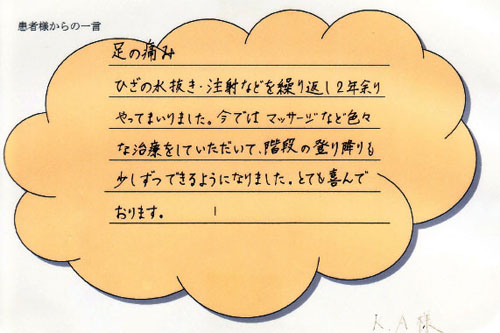 患者様からの一言
足の痛み
ひざの水抜き・注射などを繰り返し2年余り
やってまいりました。今では マッサージなど色々
な治療をしていただいて、階段の登り降りも
少しずつできるようになりました。とても喜んで
おります。
K.A様